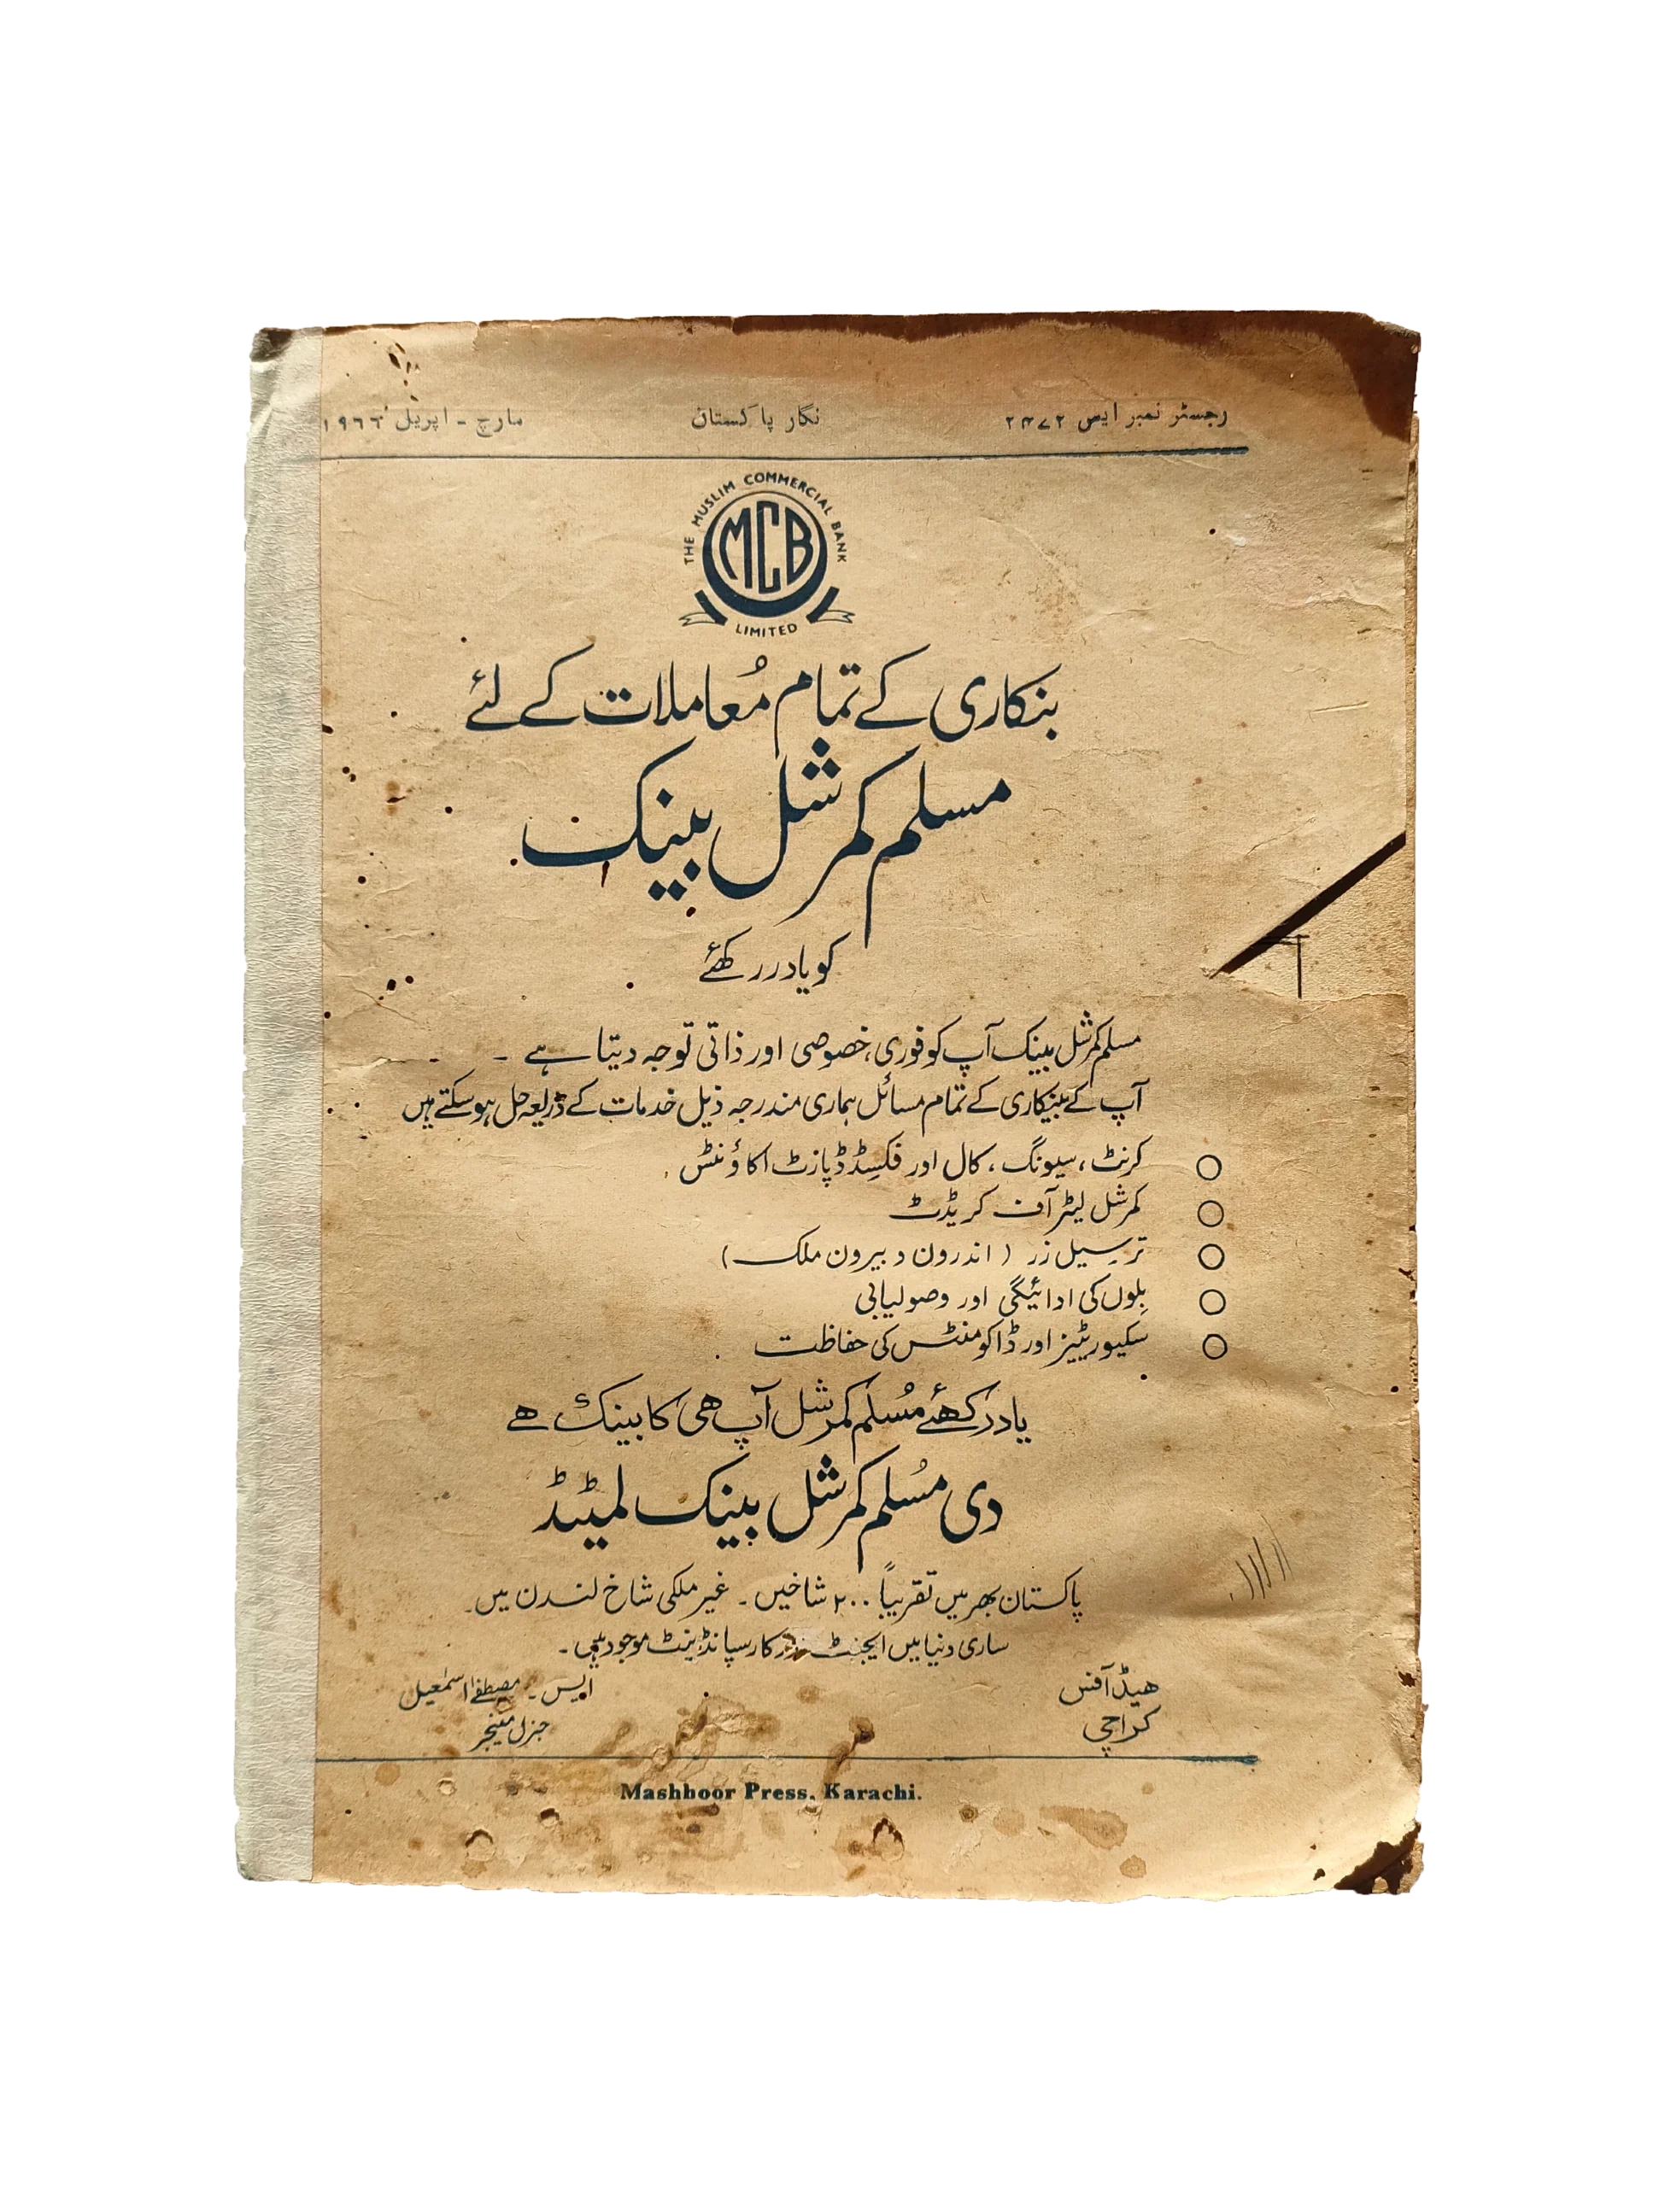 رجسٹر نمبر ایس ۲۴۷۲ نگار پاکستان مارچ - اپریل ۱۹۶۶
THE MUSLIM COMMERCIAL BANK
MCB
LIMITED
بنکاری کے تمام مُعاملات کے لئے
مسلم کمرشل بینک
کو یاد رکھئے
مسلم کمرشل بینک آپ کو فوری، خصوصی اور ذاتی توجہ دیتا ہے -
آپ کے بینکاری کے تمام مسائل ہماری مندرجہ ذیل خدمات کے ذریعہ حل ہو سکتے ہیں
کرنٹ، سیونگ، کال اور فکسِڈ ڈپازٹ اکاؤنٹس
کمرشل لیٹر آف کریڈٹ
ترسیل زر (اندرون و بیرون ملک)
بِلوں کی ادائیگی اور وصولیابی
سکیورٹیز اور ڈاکومنٹس کی حفاظت
یاد رکھئے مُسلم کمرشل آپ ھی کا بینک ھے
دی مُسلم کمرشل بینک لمیٹیڈ
پاکستان بھر میں تقریباً ۲۰۰ شاخیں - غیر ملکی شاخ لندن میں -
ساری دنیا میں ایجنٹ کارسپانڈینٹ موجود ہیں -
ھیڈ آفس ایس - مصطفےٰ اسمٰعیل
کراچی جنرل منیجر
Mashhoor Press, Karachi.